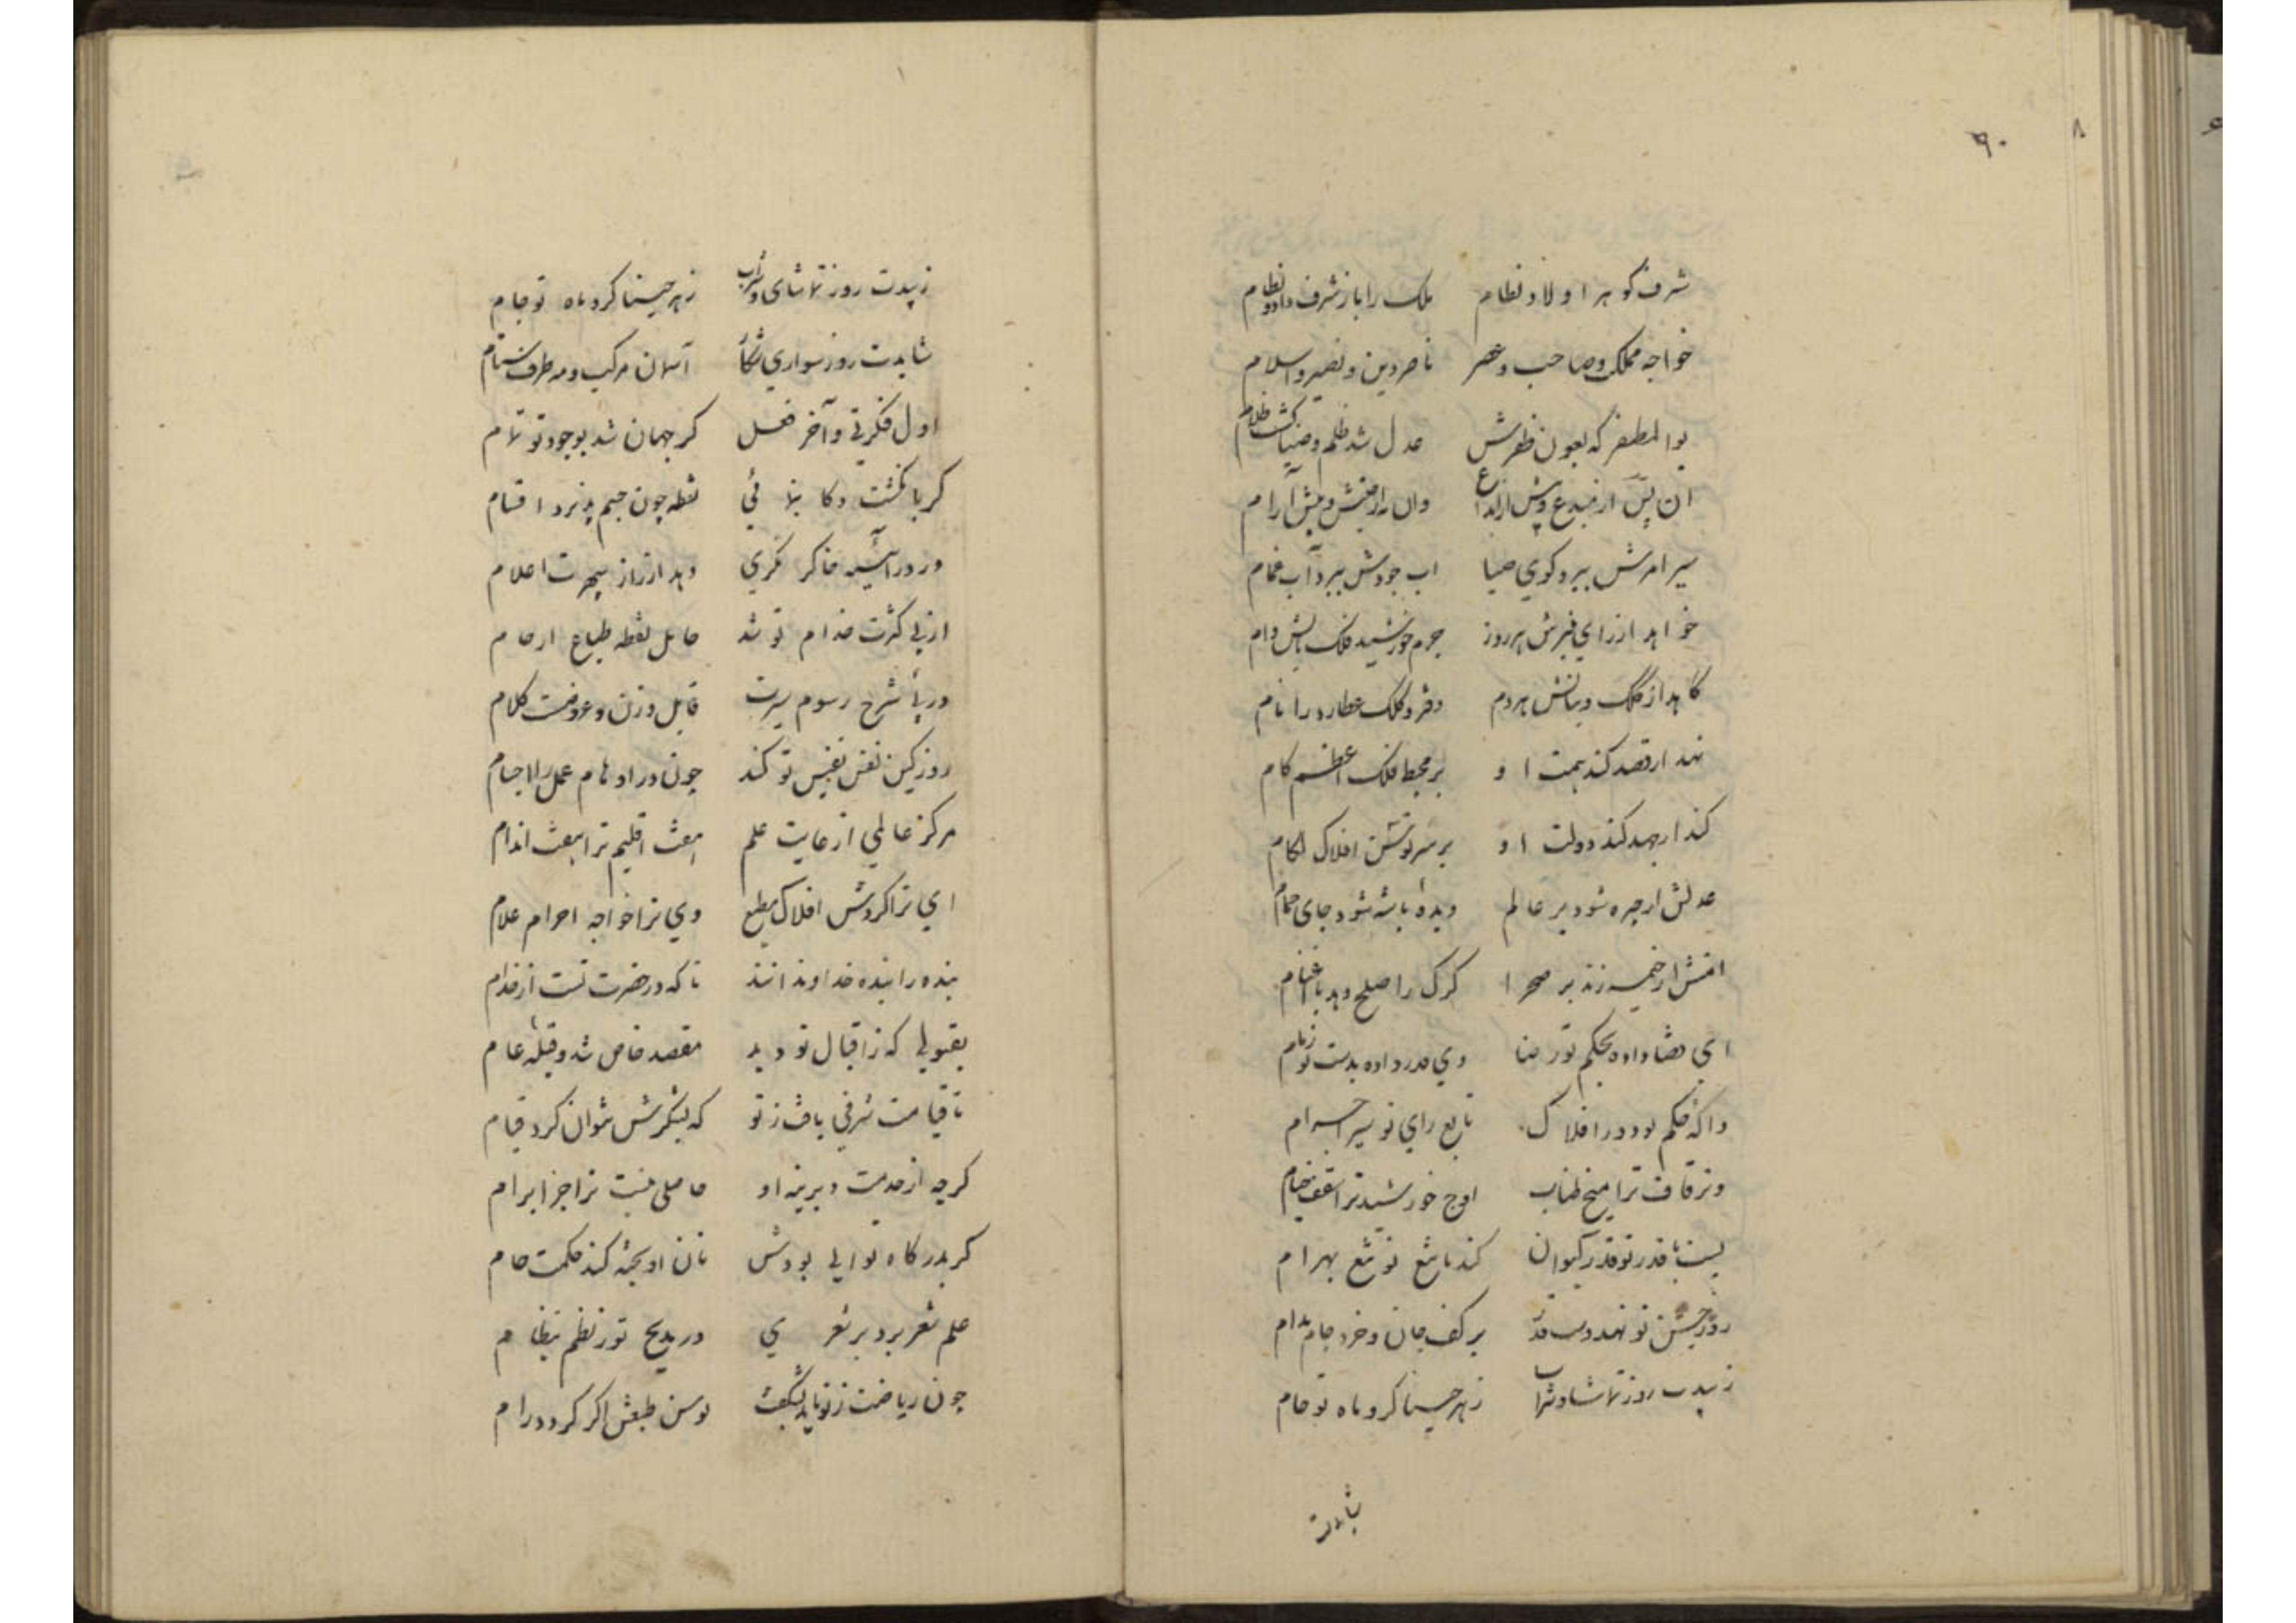 ۹۰
شرف کوهر اولاد نظام ملک را باز شرف داد و نظام
خواجه مملکت و صاحب عصر ناصر دین و نصیر اسلام
بوالمظفر که بعون ظفرش عدل شد ظلم و ضیا کشت ظلام
آن پس از مبدع و پیش از ابداع وان
سیر امرش ببرد کوی صبا اب جودش ببرد آب غمام
خواهد از رای منیرش هر روز جرم خورشید فلک تابش وام
کاهد از کلک و بنانش هر دم دفتر و کلک عطارد را نام
نهد ار قصد کند همت او بر محیط فلک اعظم کام
کند ار جهد کند دولت او بر سر توسن افلاک لکام
عدلش ار چیره شود بر عالم دیده باشه شود جای حمام
امنش ار خیمه زند بر صحرا کرک را صلح دهد با اغنام
ای قضا داده بحکم تو رضا وی قدر داده بدست تو زمام
والۀ حکم تو دور افلاک تابع رای تو سیر اجرام
وتر قاف ترا میخ طناب اوج خورشید ترا سقف خیام
پست با قدر تو قدر کیوان کند با تیغ تو تیغ بهرام
روز جشن تو نهد دست قدر بر کف جان و خرد جام مدام
زیبدت روز تماشا و شراب زهره خنیاکر و ماه تو جام
شایدت
زیبدت روز تماشای و شراب زهره خنیاکر و ماه تو جام
شایدت روز سواری و شکار آسمان مرکب و مه طرف ستام
اول فکرتی و آخر فعل کر جهان شد بوجود تو تمام
کر بانکشت ذکا بنمائی نقطه چون جسم پذیرد اقسام
ور در آئینه خاطر نکری دهد از راز سپهرت اعلام
از پی کثرت خدام تو شد حامل نقطه طباع ارحام
در پی شرح رسوم سیرت قابل وزن و عروضست کلام
روز کین نفس نفیس تو کند چون در اوهام عمل را اجسام
مرکز عالمی از غایت علم هفت اقلیم ترا هفت اندام
ای ترا کردش افلاک مطیع وی ترا خواجه اجرام غلام
بنده را بنده خداوندانند تا که در حضرت تست از خدام
بقبولی که ز اقبال تو دید مقصد خاص شد و قبلۀ عام
تا قیامت شرفی یافت ز تو که بشکرش نتوان کرد قیام
کرچه از خدمت دیرینه او حاصلی نیست ترا جز ابرام
کر بدرکاه تو ابی بودش نان او پخته کند حکمت خام
علم شعر برد بر شعری در مدیح تو ز نظم نظام
چون ریاضت ز تو یابد نشکفت توسن طبعش اکر کردد رام